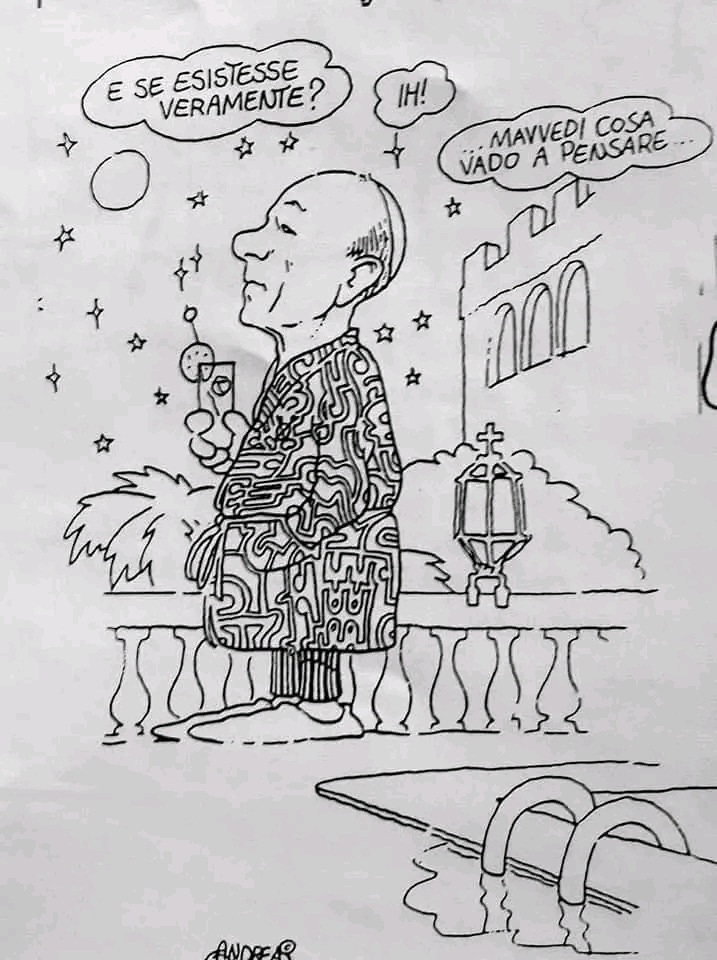 E SE ESISTESSE
VERAMENTE?
IH!
... MAVVEDI COSA
VADO A PENSARE...